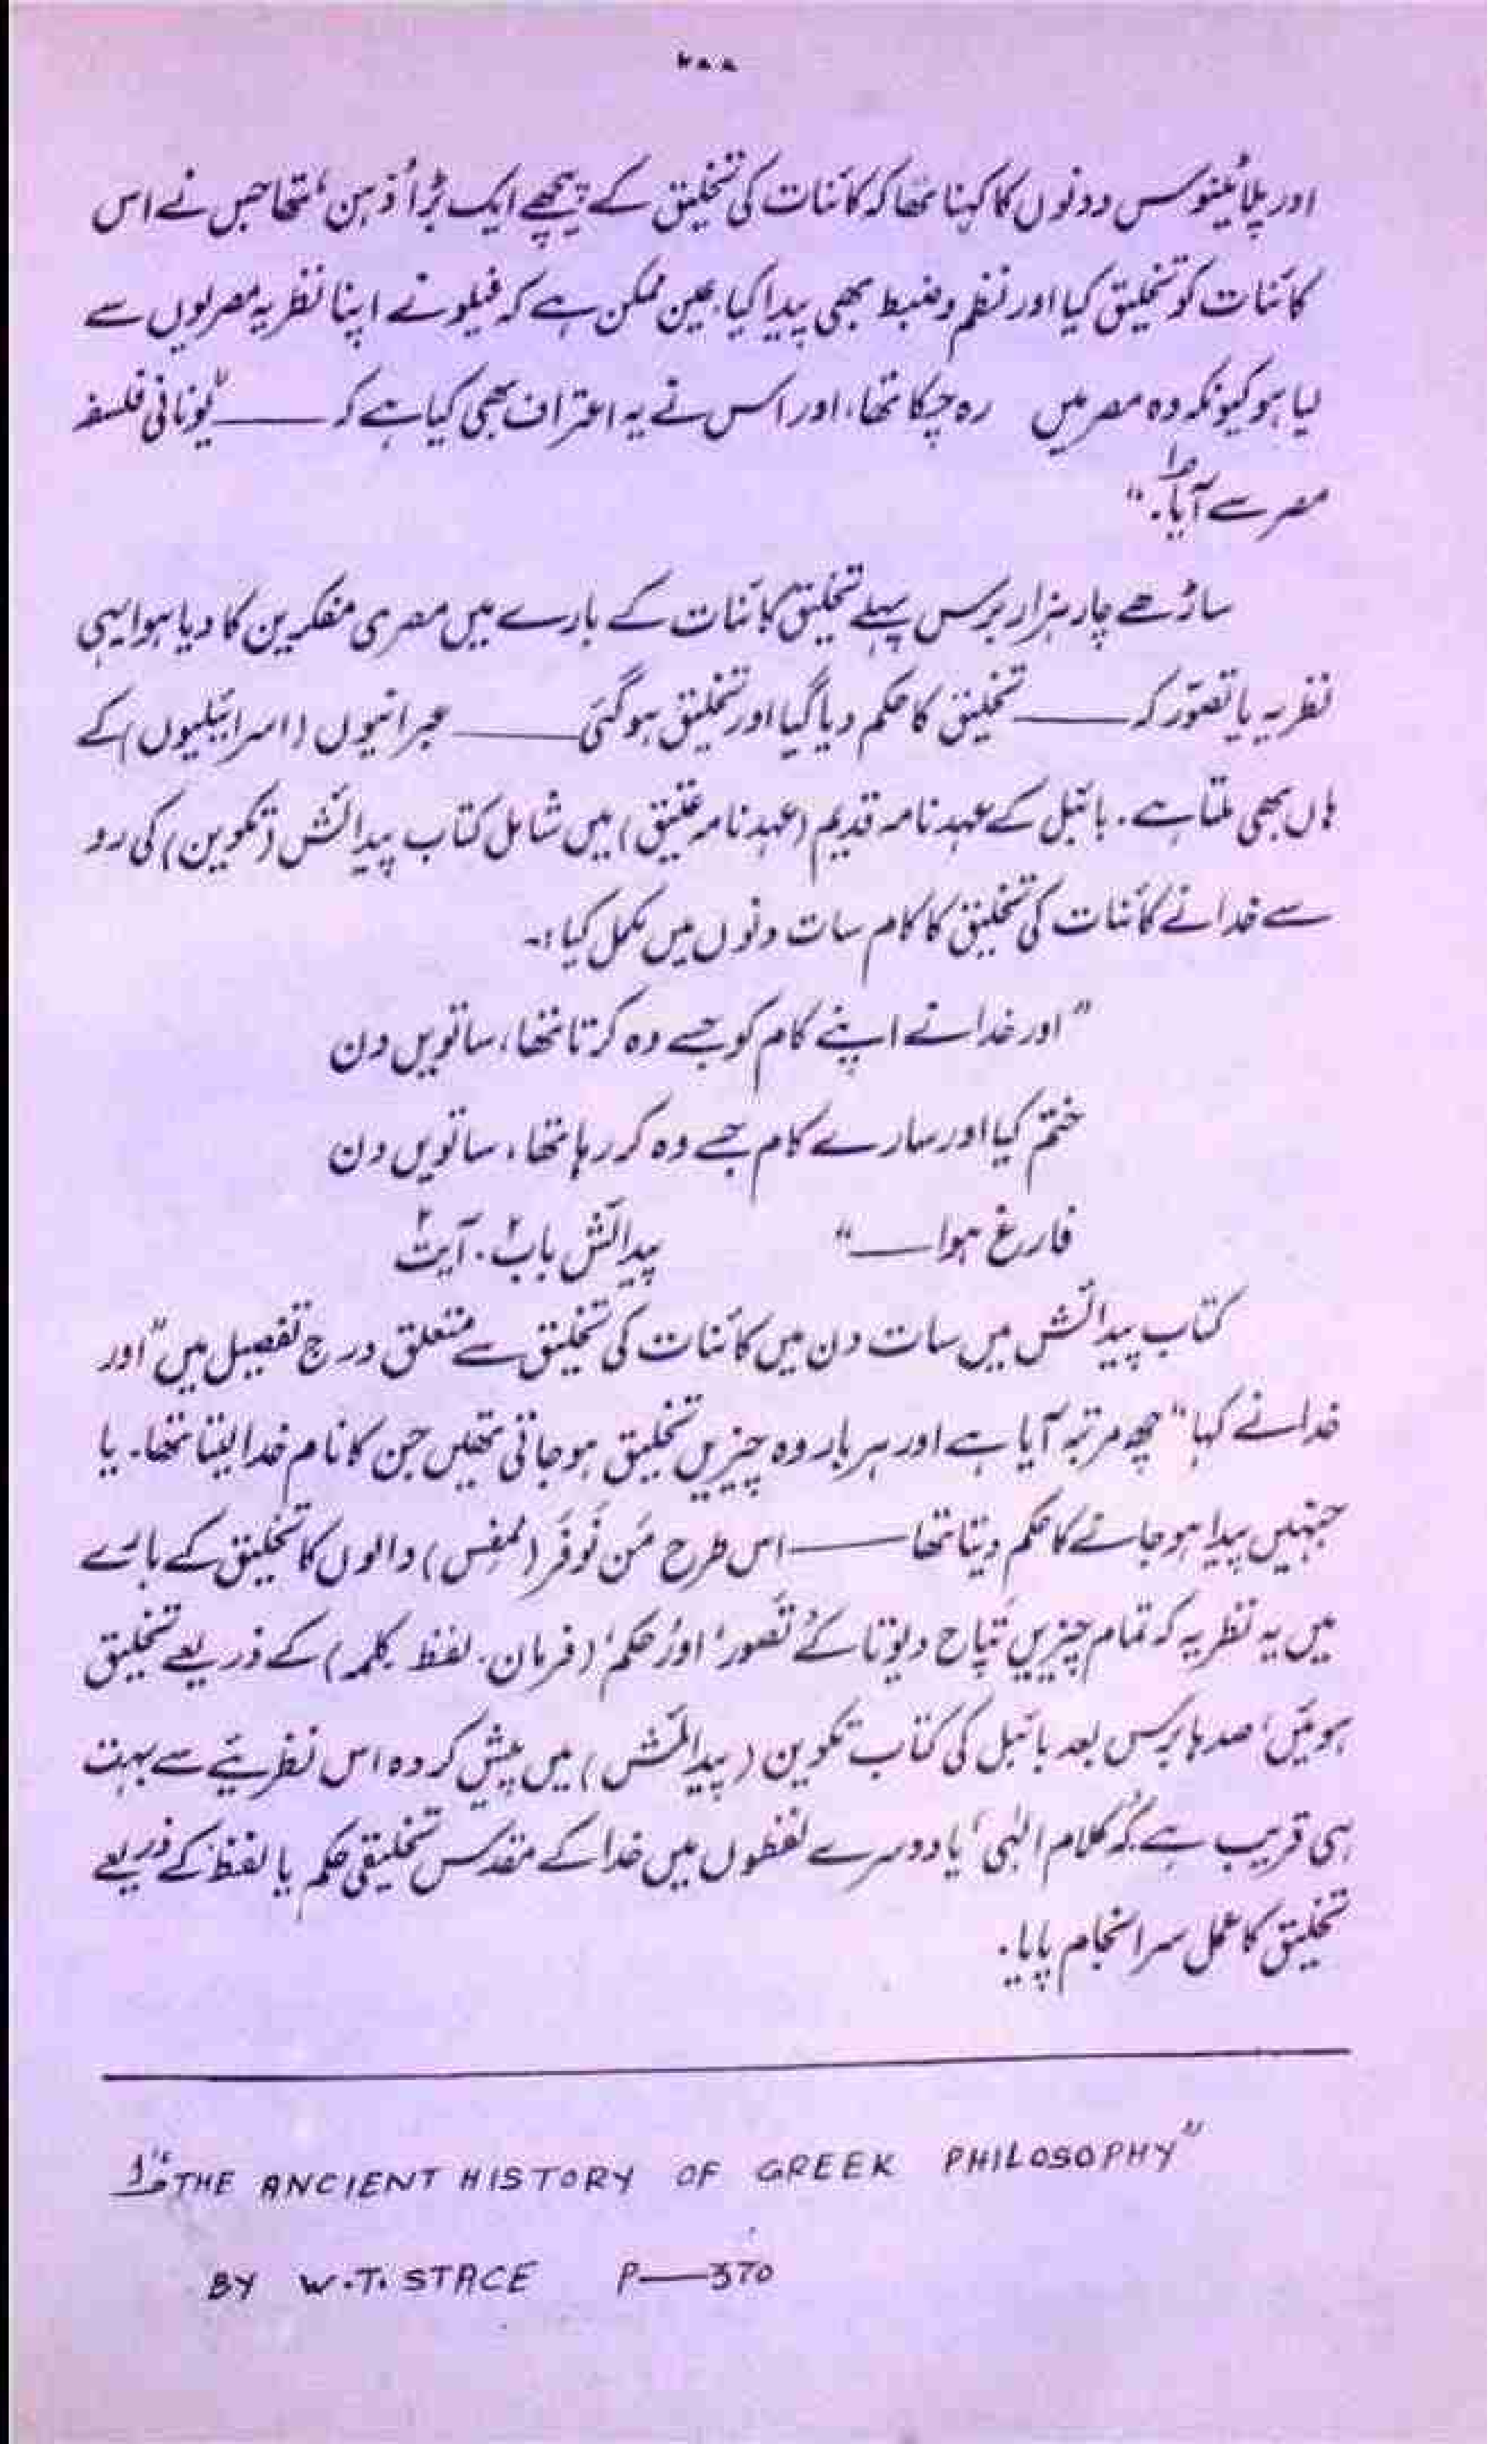 اور پلاٹینوس دونوں کا کہنا تھا کہ کائنات کی تخلیق کے پیچھے ایک بڑا ’ذہن‘ تھا جس نے اس
کائنات کو تخلیق کیا اور نظم و ضبط بھی پیدا کیا، عین ممکن ہے کہ فیلو نے اپنا نظریہ مصریوں سے
لیا ہو کیونکہ وہ مصر میں رہ چکا تھا، اور اس نے یہ اعتراف بھی کیا ہے کہ —— "یونانی فلسفہ
مصر سے آیا۔"
ساڑھے چار ہزار برس پہلے تخلیق کائنات کے بارے میں مصری مفکرین کا دیا ہوا یہی
نظریہ یا تصوّر کہ —— تخلیق کا حکم دیا گیا اور تخلیق ہو گئی —— عبرانیوں (اسرائیلیوں) کے
ہاں بھی ملتا ہے۔ بائبل کے عہد نامہ قدیم (عہد نامہ عتیق) میں شامل کتاب پیدائش (تکوین) کی رو
سے خدا نے کائنات کی تخلیق کا کام سات دنوں میں مکمل کیا:۔
"اور خدا نے اپنے کام کو جسے وہ کرتا تھا، ساتویں دن
ختم کیا اور سارے کام جسے وہ کر رہا تھا، ساتویں دن
فارغ ہوا ——" پیدائش باب ۲۔ آیت ۲
کتاب پیدائش میں سات دن میں کائنات کی تخلیق سے متعلق درج تفصیل میں "اور
خدا نے کہا" چھ مرتبہ آیا ہے اور ہر بار وہ چیزیں تخلیق ہو جاتی تھیں جن کا نام خدا لیتا تھا۔ یا
جنہیں پیدا ہو جانے کا حکم دیتا تھا —— اس طرح مَن نَوفَر (ممفس) والوں کا تخلیق کے بارے
میں یہ نظریہ کہ تمام چیزیں پتاح دیوتا کے ’تصور‘ اور ’حکم‘ (فرمان۔ لفظ۔ کلمہ) کے ذریعے تخلیق
ہوئیں، صدہا برس بعد بائبل کی کتاب تکوین (پیدائش) میں پیش کردہ اس نظریئے سے بہت
ہی قریب ہے کہ ’کلام الہٰی‘ یا دوسرے لفظوں میں خدا کے مقدس تخلیقی حکم یا لفظ کے ذریعے
تخلیق کا عمل سرانجام پایا۔
"THE ANCIENT HISTORY OF GREEK PHILOSOPHY"
BY W.T. STACE P—370